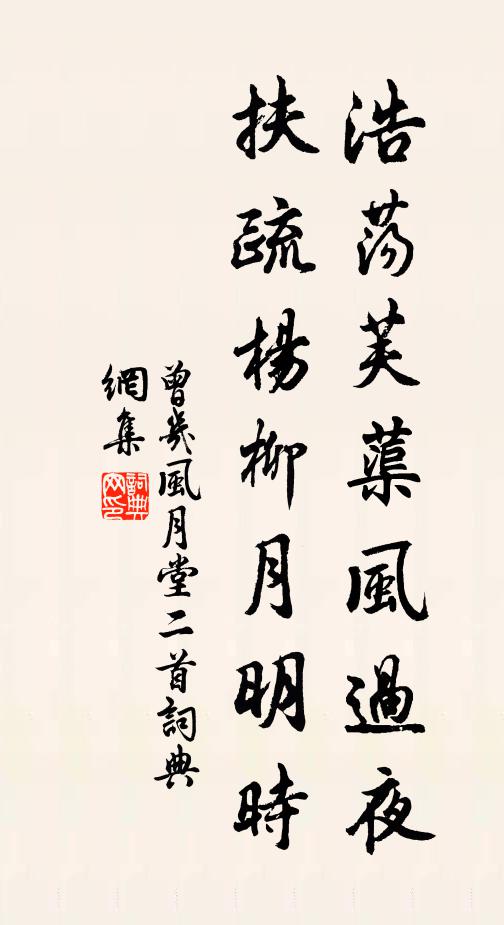 浩蕩芙蕖風過夜
扶疏楊柳月明時
曾幾風月堂二首詞典
網集
詞典
网印